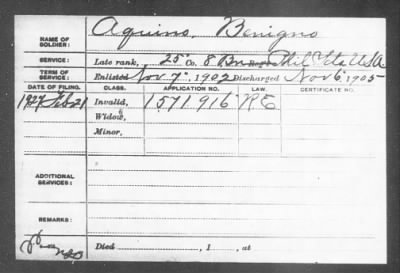 NAME OF SOLDIER: Aquino, Benigno
SERVICE: Late rank, 25" Co. 8 Bn Phil Sts USA
TERM OF SERVICE: Enlisted Nov. 7", 1902 Discharged Nov 6, 1905
DATE OF FILING. CLASS. APPLICATION NO. LAW. CERTIFICATE NO.
1927 Feb 21 Invalid, 1571916 R.E
Widow,
Minor,
ADDITIONAL SERVICES:
REMARKS:
Died , 1 , at